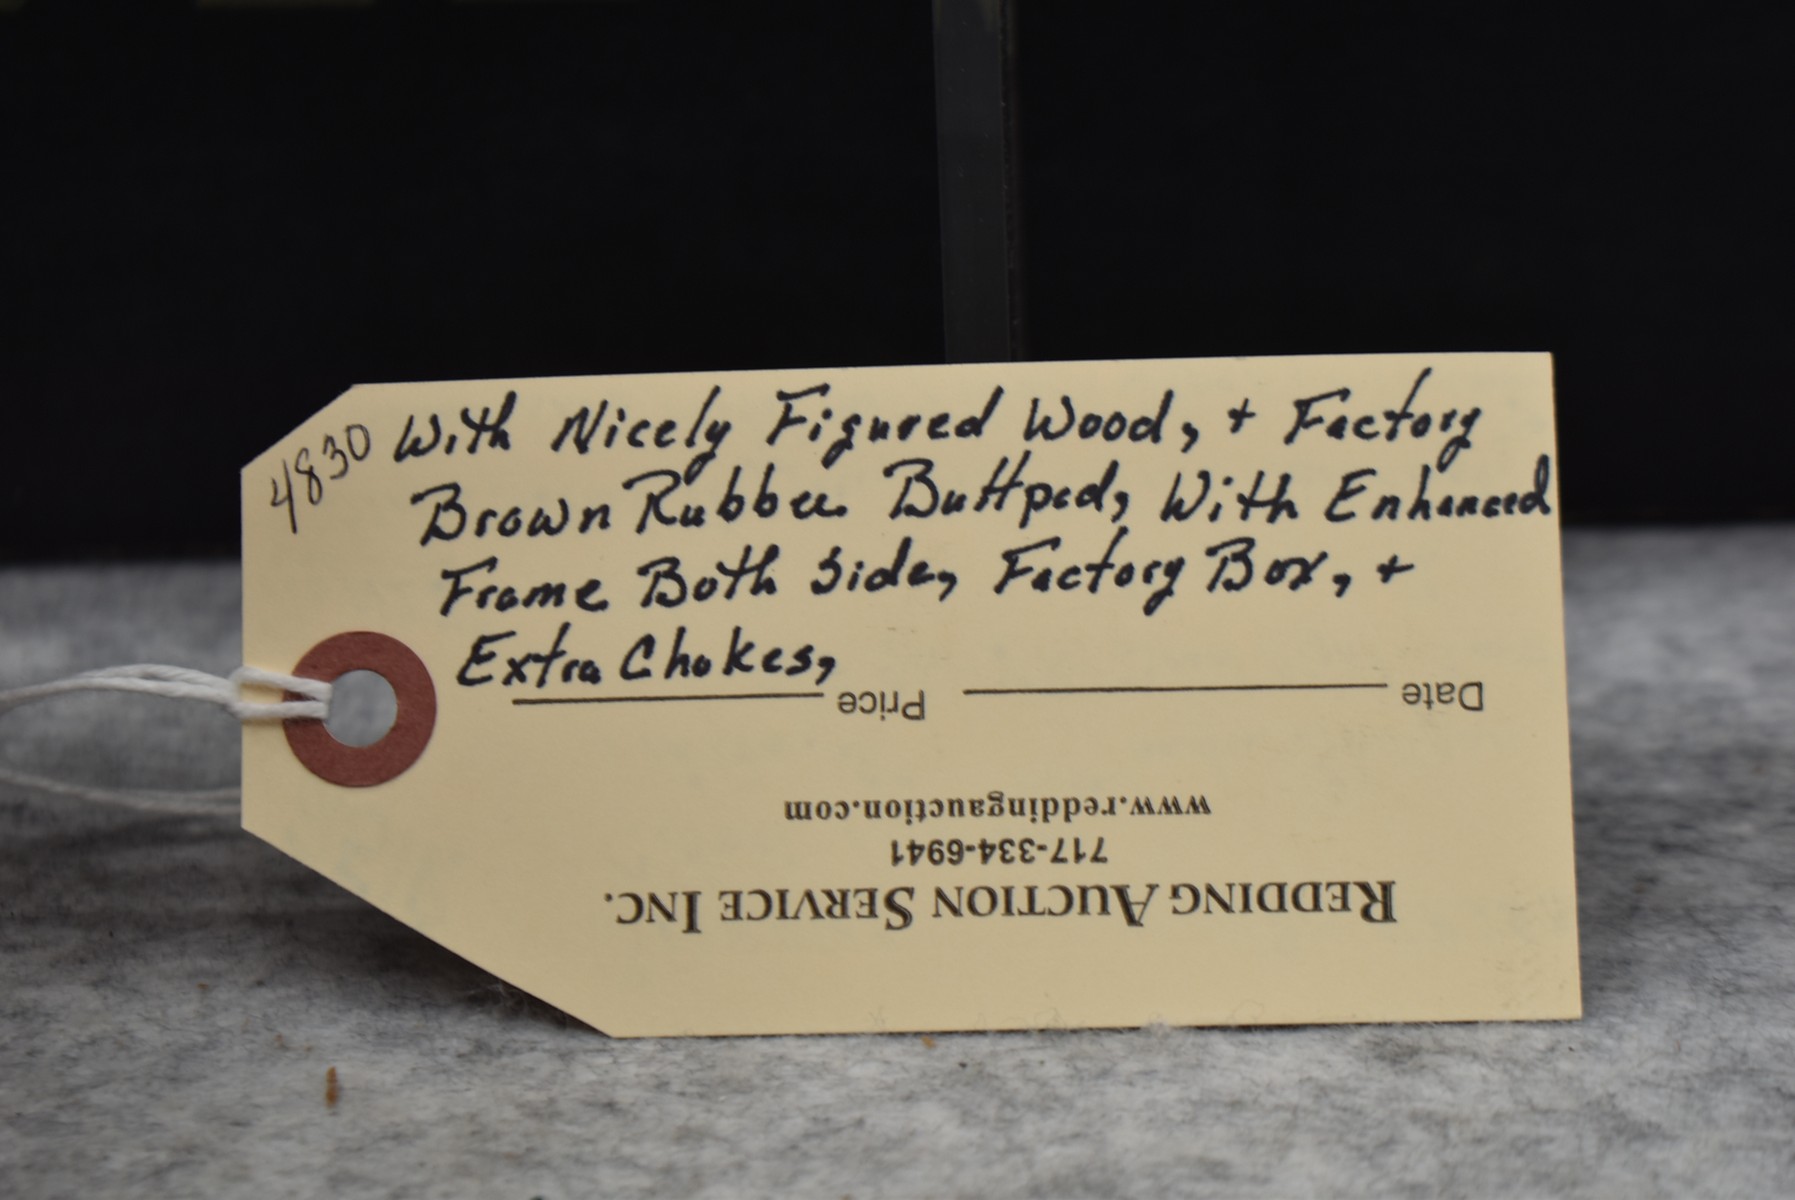 4830
With Nicely Figured Wood, + Factory
Brown Rubber Buttpad, With Enhanced
Frame Both Side, Factory Box, +
Extra Chokes,
Date Price
www.reddingauction.com
717-334-6941
REDDING AUCTION SERVICE INC.